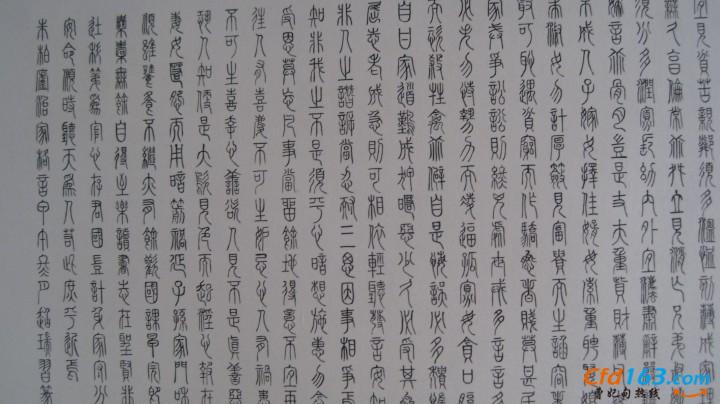 宜見貧苦親鄰須多溫恤刻薄成家理
無久享倫常乖舛立見消亡兄弟叔
須分多潤寡長幼內外宜法肅辭嚴
婦言乖骨肉豈是丈夫重資財薄
不成人子嫁女擇佳婿毋索重聘娶
求淑女毋計厚奩見富貴而生諂容者
可恥遇貧窮而作驕態者賤莫甚居
家戒爭訟訟則終凶處世戒多言言多
必失勿恃勢力而凌逼孤寡毋貪口腹
而恣殺牲禽乖僻自是悔誤必多頹惰
自甘家道難成狎昵惡少久必受其累
屈志老成急則可相依輕聽發言安知
非人之譖訴當忍耐三思因事相爭焉
知非我之不是須平心暗想施惠勿念
受恩莫忘凡事當留餘地得意不宜再
往人有喜慶不可生妒忌心人有禍患
不可生喜幸心善欲人見不是真善惡
恐人知便是大惡見色而起淫心報在
妻女匿怨而用暗箭禍延子孫家門和
順雖饔飧不繼亦有餘歡國課早完
囊橐無餘自得至樂讀書志在聖賢非
徒科第為官心存君國豈計身家守分
安命順時聽天為人若此庶乎近焉
朱柏廬治家格言甲午冬月趙習篆
Cfd163.com
曹妃甸热线